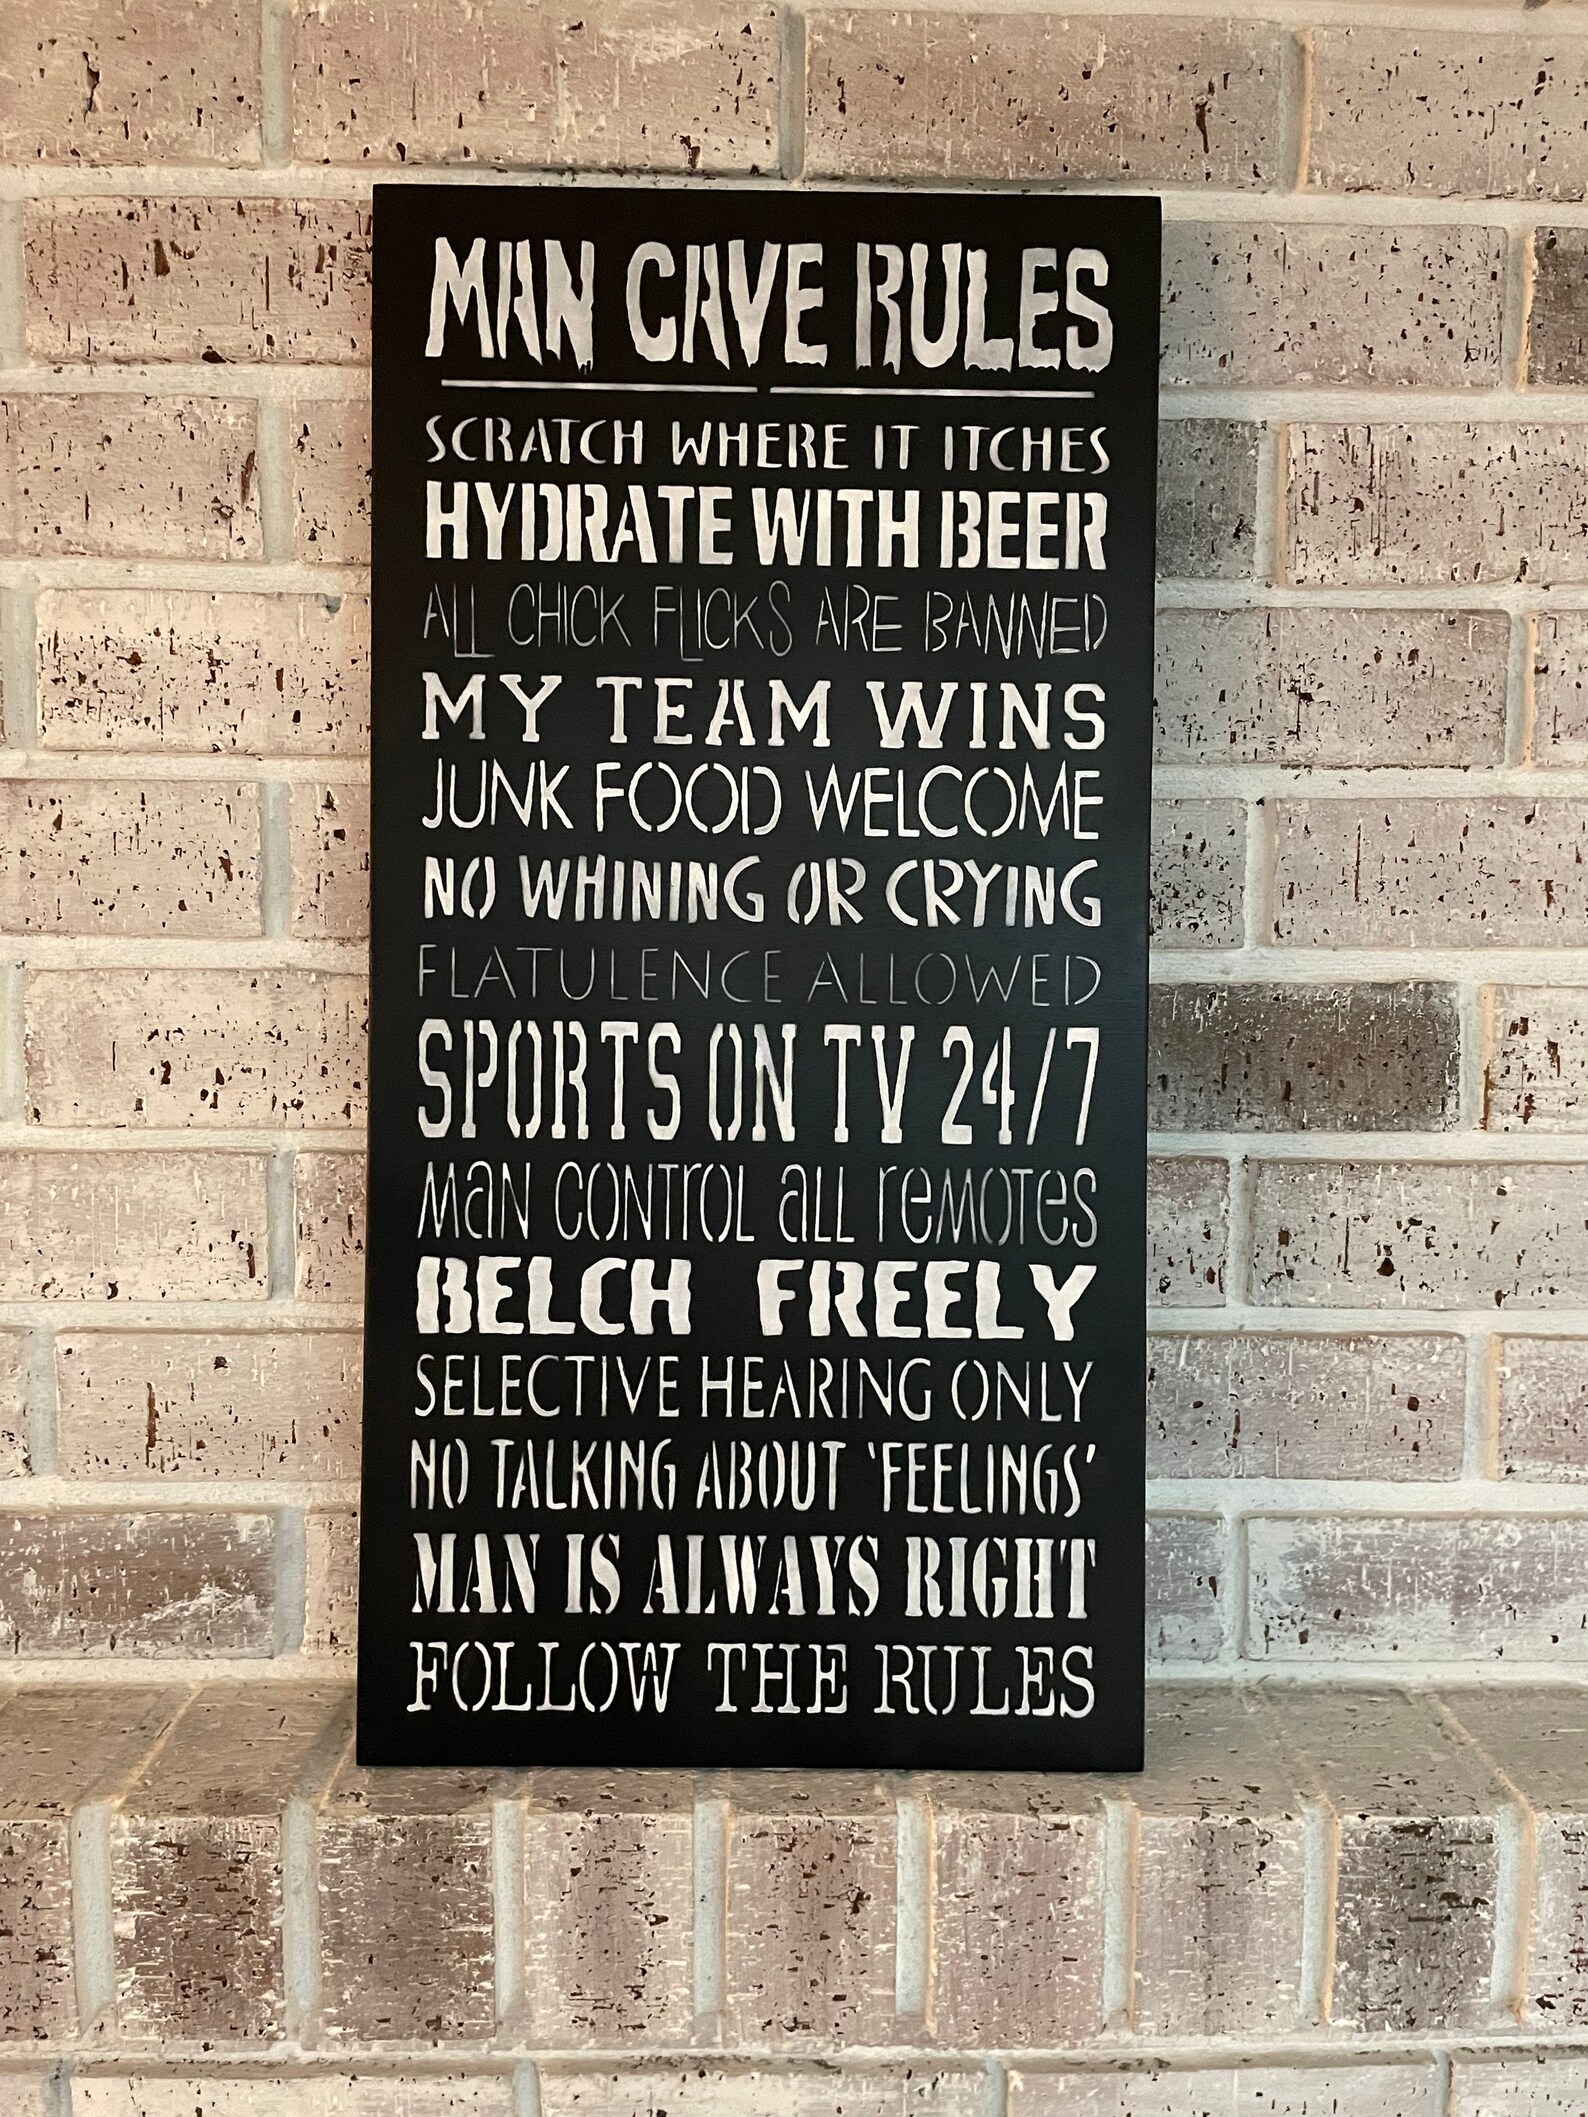 MAN CAVE RULES
SCRATCH WHERE IT ITCHES
HYDRATE WITH BEER
ALL CHICK FLICKS ARE BANNED
MY TEAM WINS
JUNK FOOD WELCOME
NO WHINING OR CRYING
FLATULENCE ALLOWED
SPORTS ON TV 24/7
MaN CONTrOL aLL reMOTes
BELCH FREELY
SELECTIVE HEARING ONLY
NO TALKING ABOUT 'FEELINGS'
MAN IS ALWAYS RIGHT
FOLLOW THE RULES